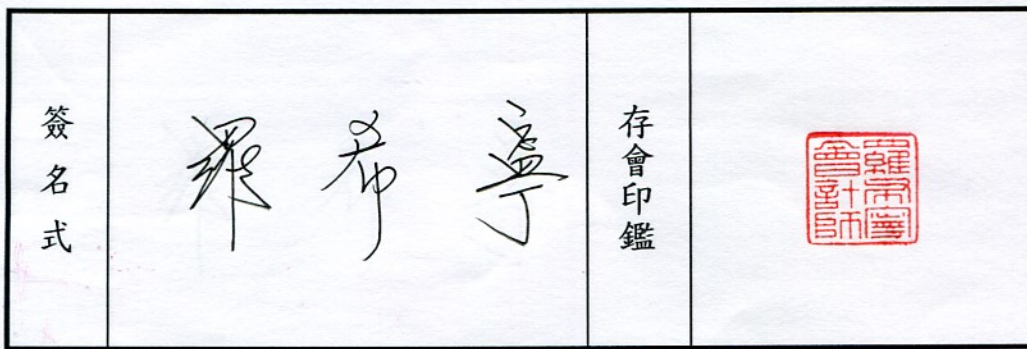 簽名式
羅希寧
存會印鑑
羅希寧會計師